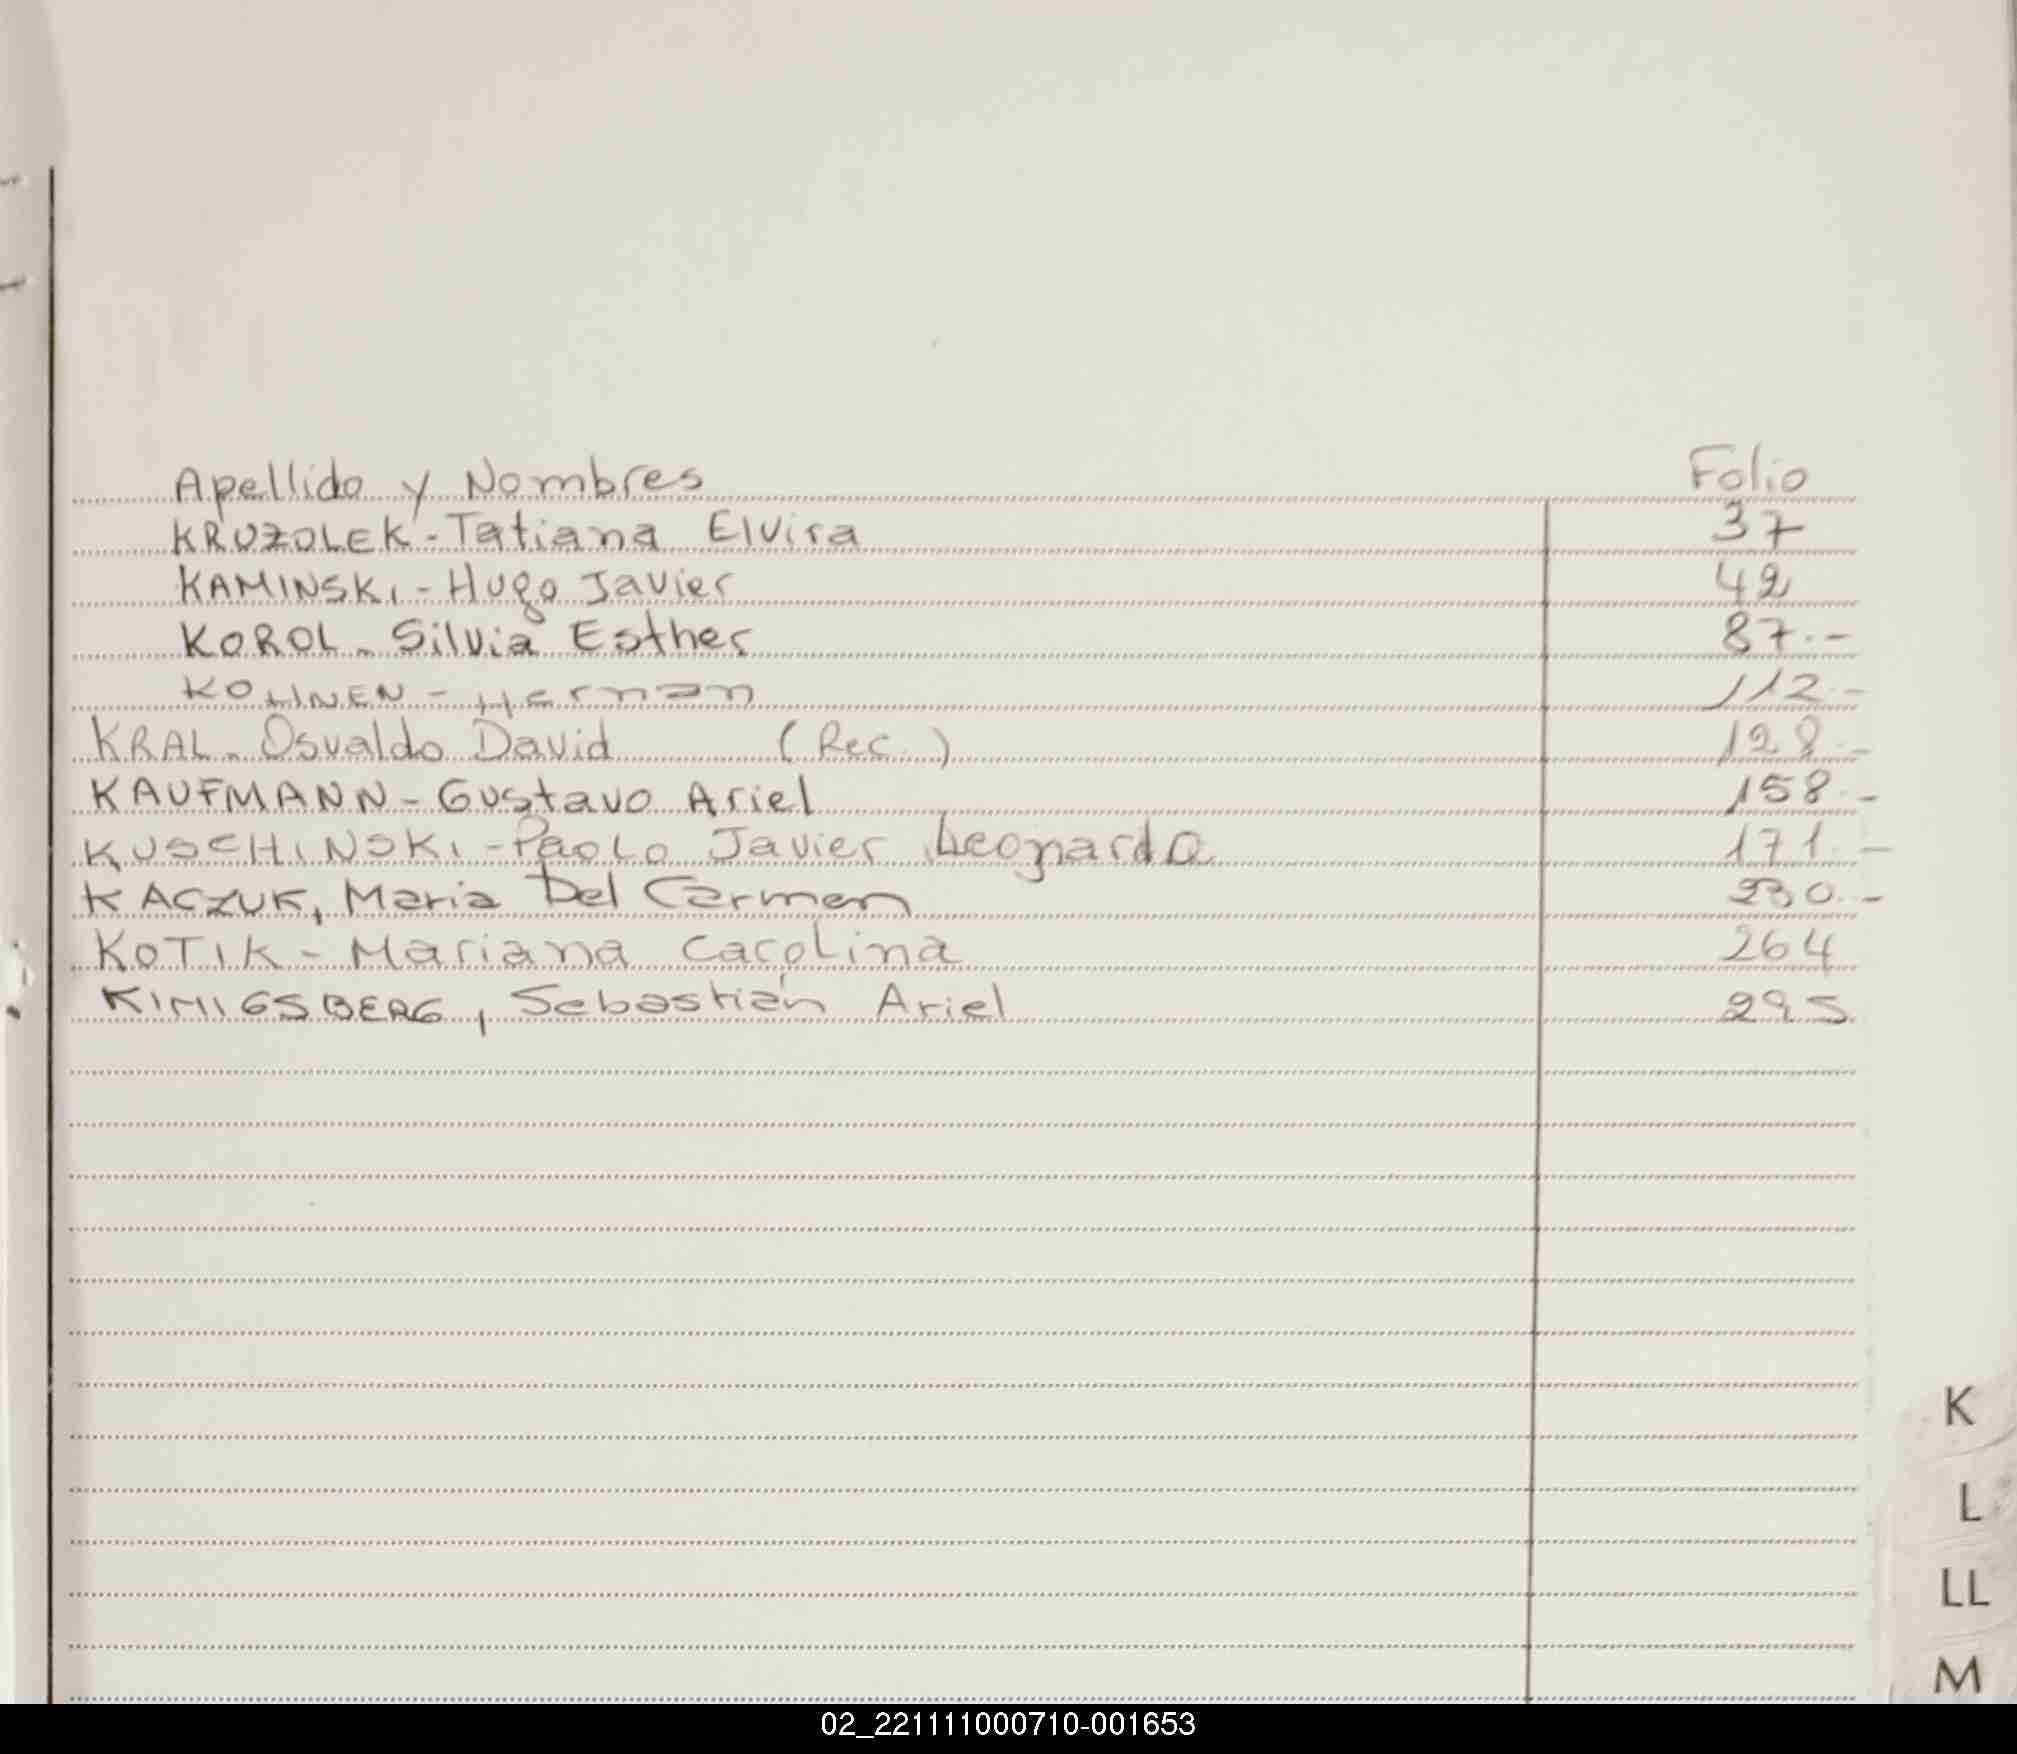 Apellido y Nombres Folio
KRUZOLEK - Tatiana Elvira 37
KAMINSKI - Hugo Javier 42
KOROL - Silvia Esther 87.-
KOHNEN - Hernan 112.-
KRAL - Osvaldo David (Rec.) 128.-
KAUFMANN - Gustavo Ariel 158.-
KUSCHINSKI - Paolo Javier Leonardo 171.-
KACZUK, Maria Del Carmen 230.-
KOTIK - Mariana Carolina 264
KINIGSBERG, Sebastián Ariel 295
K
L
LL
M
02_221111000710-001653